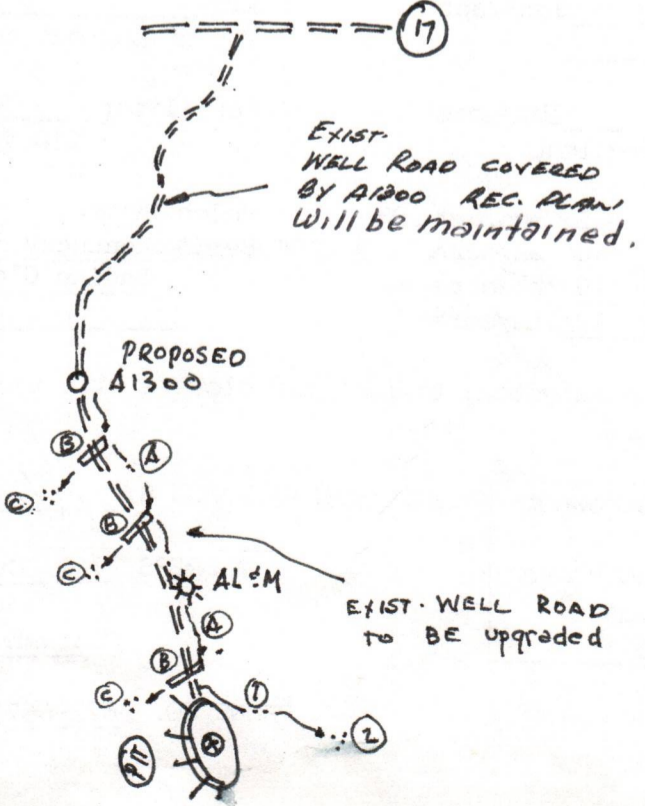 17
EXIST.
WELL ROAD COVERED
BY A1300 REC. PLAN
Will be maintained.
PROPOSED
A1300
B
A
C
B
C
AL & M
EXIST. WELL ROAD
TO BE upgraded
A
B
C
1
2
PIT